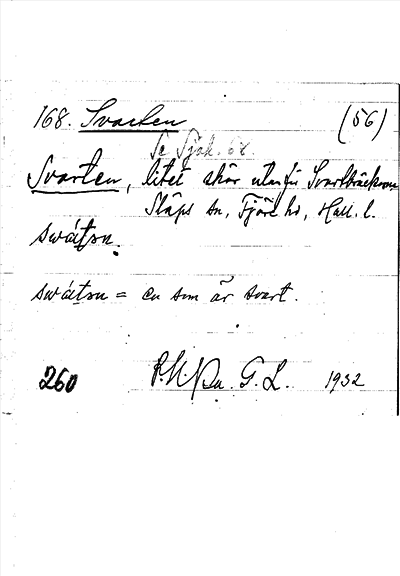 168. Svarten (56)
Se Sjök. 68.
Svarten, litet skär utanför Svartbäckarna
Släps sn, Fjäre hd, Hall. l.
swátsn.
swátsn = en som är svart.
260 G. L. 1932